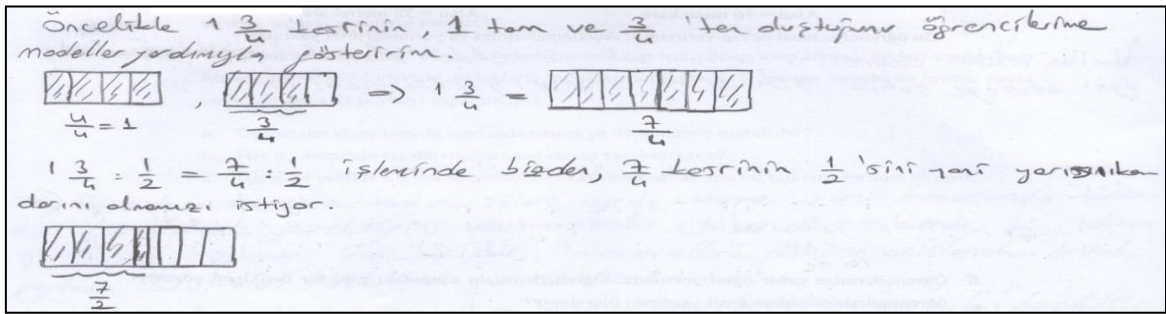 Öncelikle 1 3/4 kesrinin, 1 tam ve 3/4 'ten oluştuğunu öğrencilerime
modeller yardımıyla gösteririm.
, => 1 3/4 =
4/4 = 1 3/4 7/4
1 3/4 : 1/2 = 7/4 : 1/2 işleminde bizden, 7/4 kesrinin 1/2 'sini yani yarısı
darını almamızı istiyor.
7/2